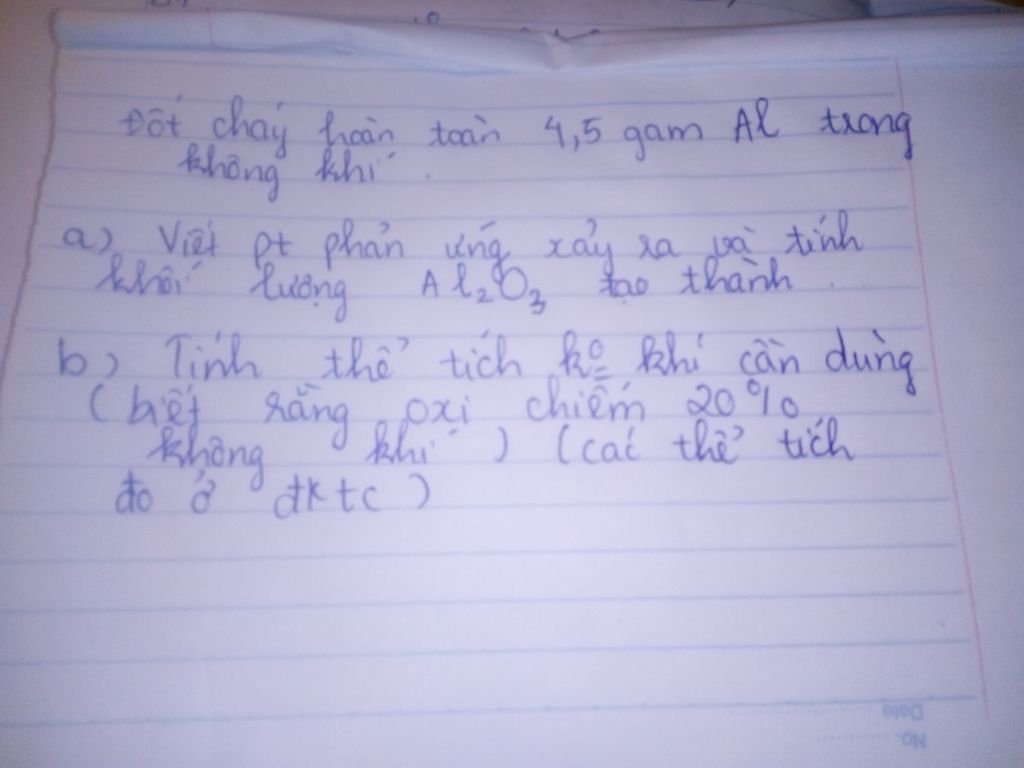 Đốt cháy hoàn toàn 4,5 gam Al trong
không khí .
a) Viết pt phản ứng xảy ra và tính
khối lượng Al2O3 tạo thành .
b) Tính thể tích ko khí cần dùng
( biết rằng oxi chiếm 20%
không khí ) (các thể tích
đo ở đktc )
Date
No.